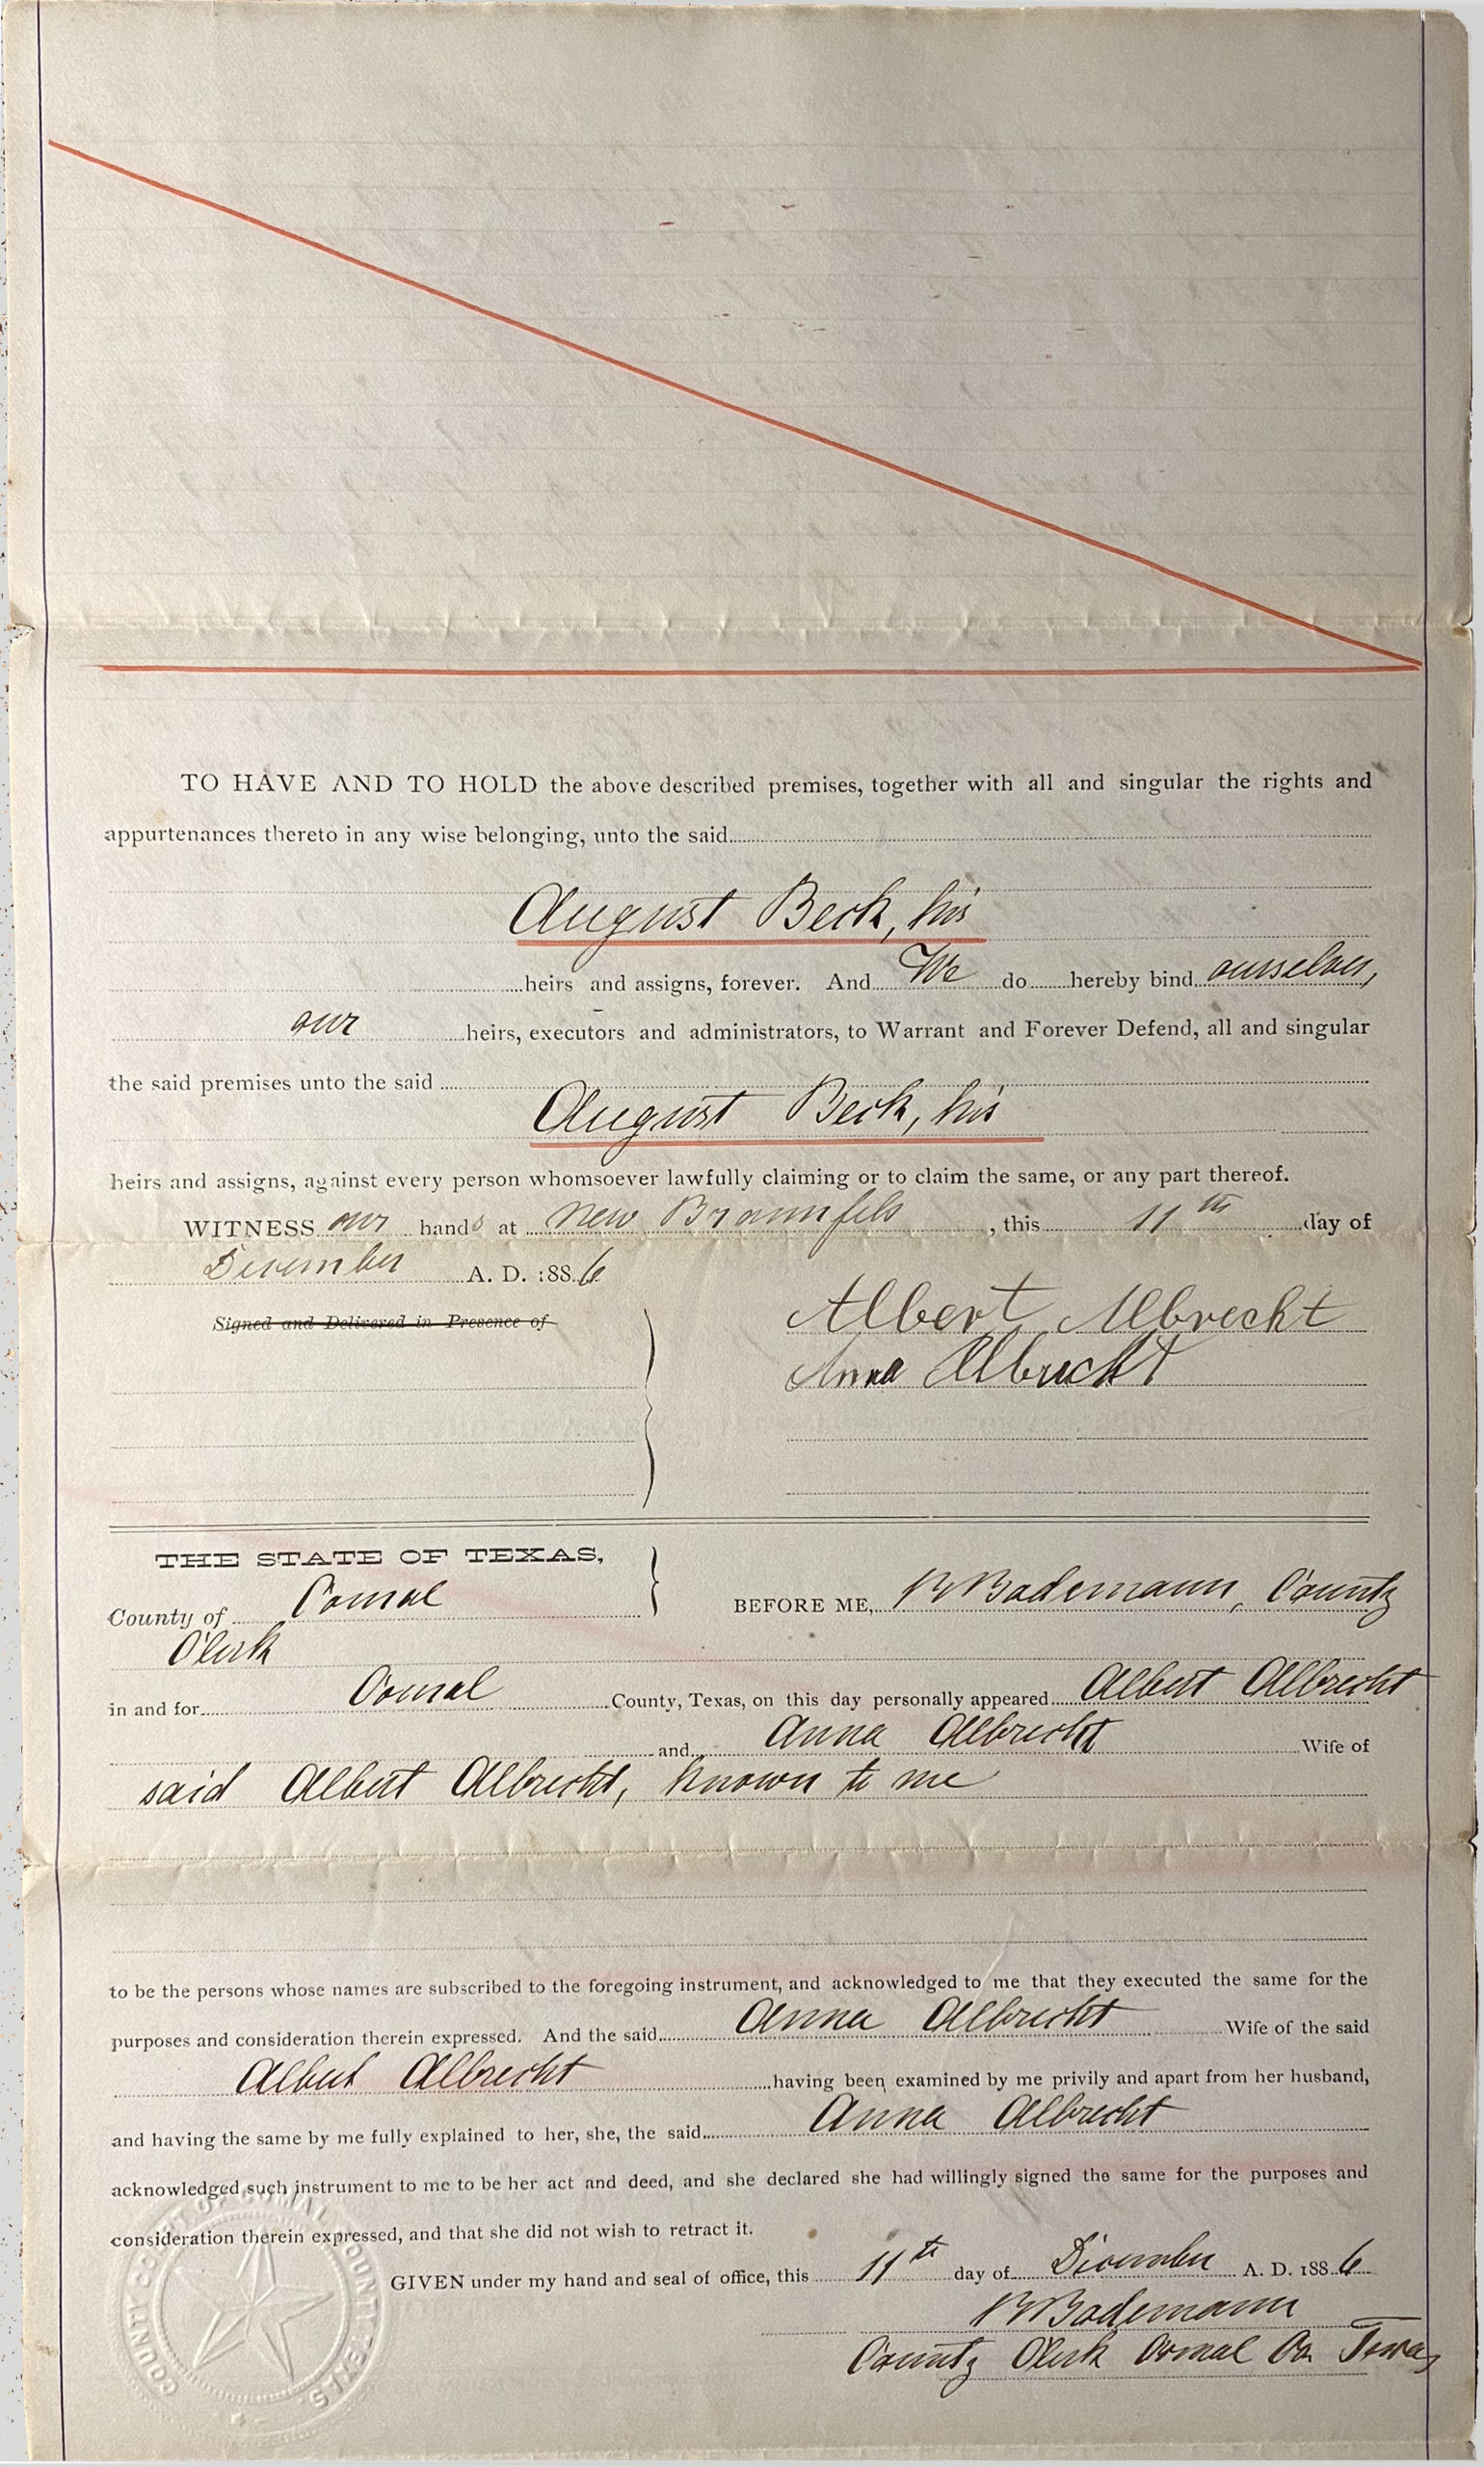 TO HAVE AND TO HOLD the above described premises, together with all and singular the rights and
appurtenances thereto in any wise belonging, unto the said
August Beck, his
heirs and assigns, forever. And We do hereby bind ourselves,
our heirs, executors and administrators, to Warrant and Forever Defend, all and singular
the said premises unto the said
August Beck, his
heirs and assigns, against every person whomsoever lawfully claiming or to claim the same, or any part thereof.
WITNESS our hands at New Braunfels, this 11th day of
December A. D. 1886
Signed and Delivered in Presence of
Albert Albrecht
Anna Albrecht
THE STATE OF TEXAS,
County of Comal
BEFORE ME, Bodemann, County
Clerk
in and for Comal County, Texas, on this day personally appeared Albert Albrecht
and Anna Albrecht Wife of
said Albert Albrecht, known to me
to be the persons whose names are subscribed to the foregoing instrument, and acknowledged to me that they executed the same for the
purposes and consideration therein expressed. And the said Anna Albrecht Wife of the said
Albert Albrecht having been examined by me privily and apart from her husband,
and having the same by me fully explained to her, she, the said Anna Albrecht
acknowledged such instrument to me to be her act and deed, and she declared she had willingly signed the same for the purposes and
consideration therein expressed, and that she did not wish to retract it.
GIVEN under my hand and seal of office, this 11th day of December A. D. 1886
Bodemann
County Clerk Comal Co Texas
COUNTY COURT OF COMAL COUNTY TEXAS.